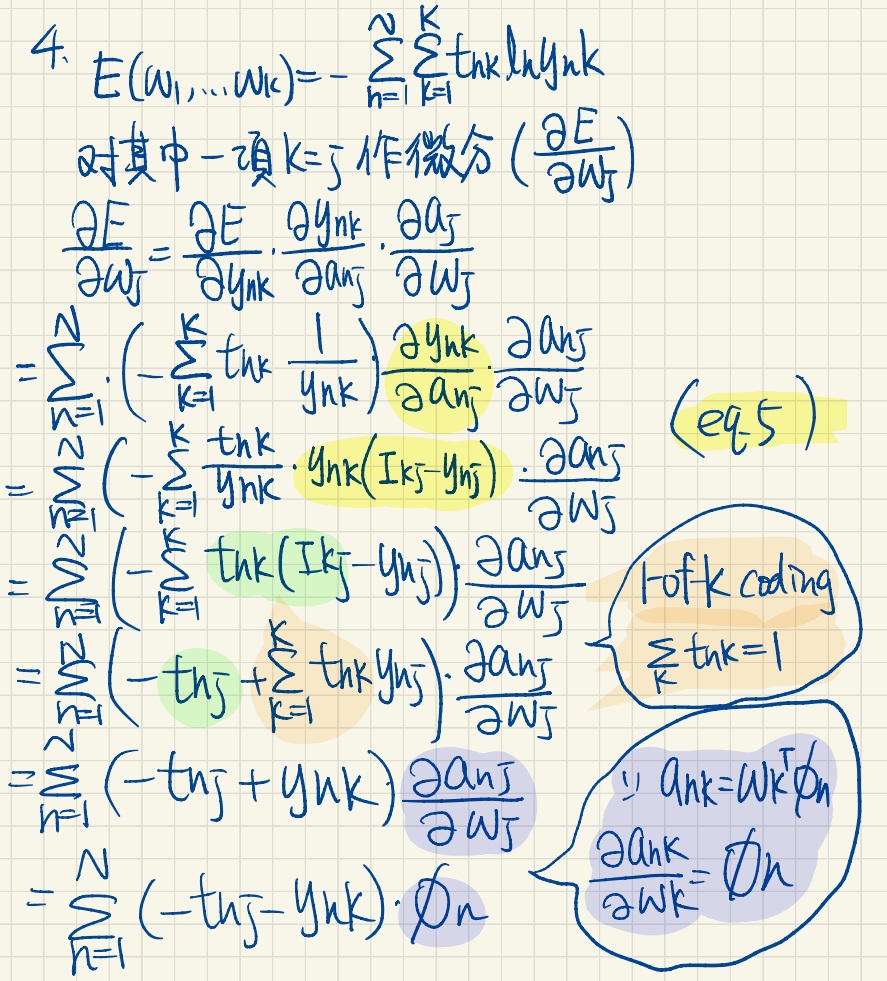 4. E(w₁,...wₖ) = - Σ_{n=1}^{N} Σ_{k=1}^{K} tnk ln ynk
对其中一項 k=j 作微分 (∂E/∂wj)
∂E/∂wj = ∂E/∂ynk · ∂ynk/∂anj · ∂aj/∂wj
= Σ_{n=1}^{N} · (- Σ_{k=1}^{K} tnk 1/ynk) ∂ynk/∂anj · ∂anj/∂wj
(eq.5)
= Σ_{n=1}^{N} (- Σ_{k=1}^{K} tnk/ynk · ynk(Ikj - ynj)) · ∂anj/∂wj
= Σ_{n=1}^{N} (- Σ_{k=1}^{K} tnk(Ikj - ynj)) · ∂anj/∂wj
1-of-K coding
Σ_k tnk = 1
= Σ_{n=1}^{N} (- tnj + Σ_{k=1}^{K} tnk ynj) · ∂anj/∂wj
= Σ_{n=1}^{N} (-tnj + ynk) ∂anj/∂wj
∵ ank = wkᵀ Øn
∂ank/∂wk = Øn
= Σ_{n=1}^{N} (-tnj - ynk) · Øn